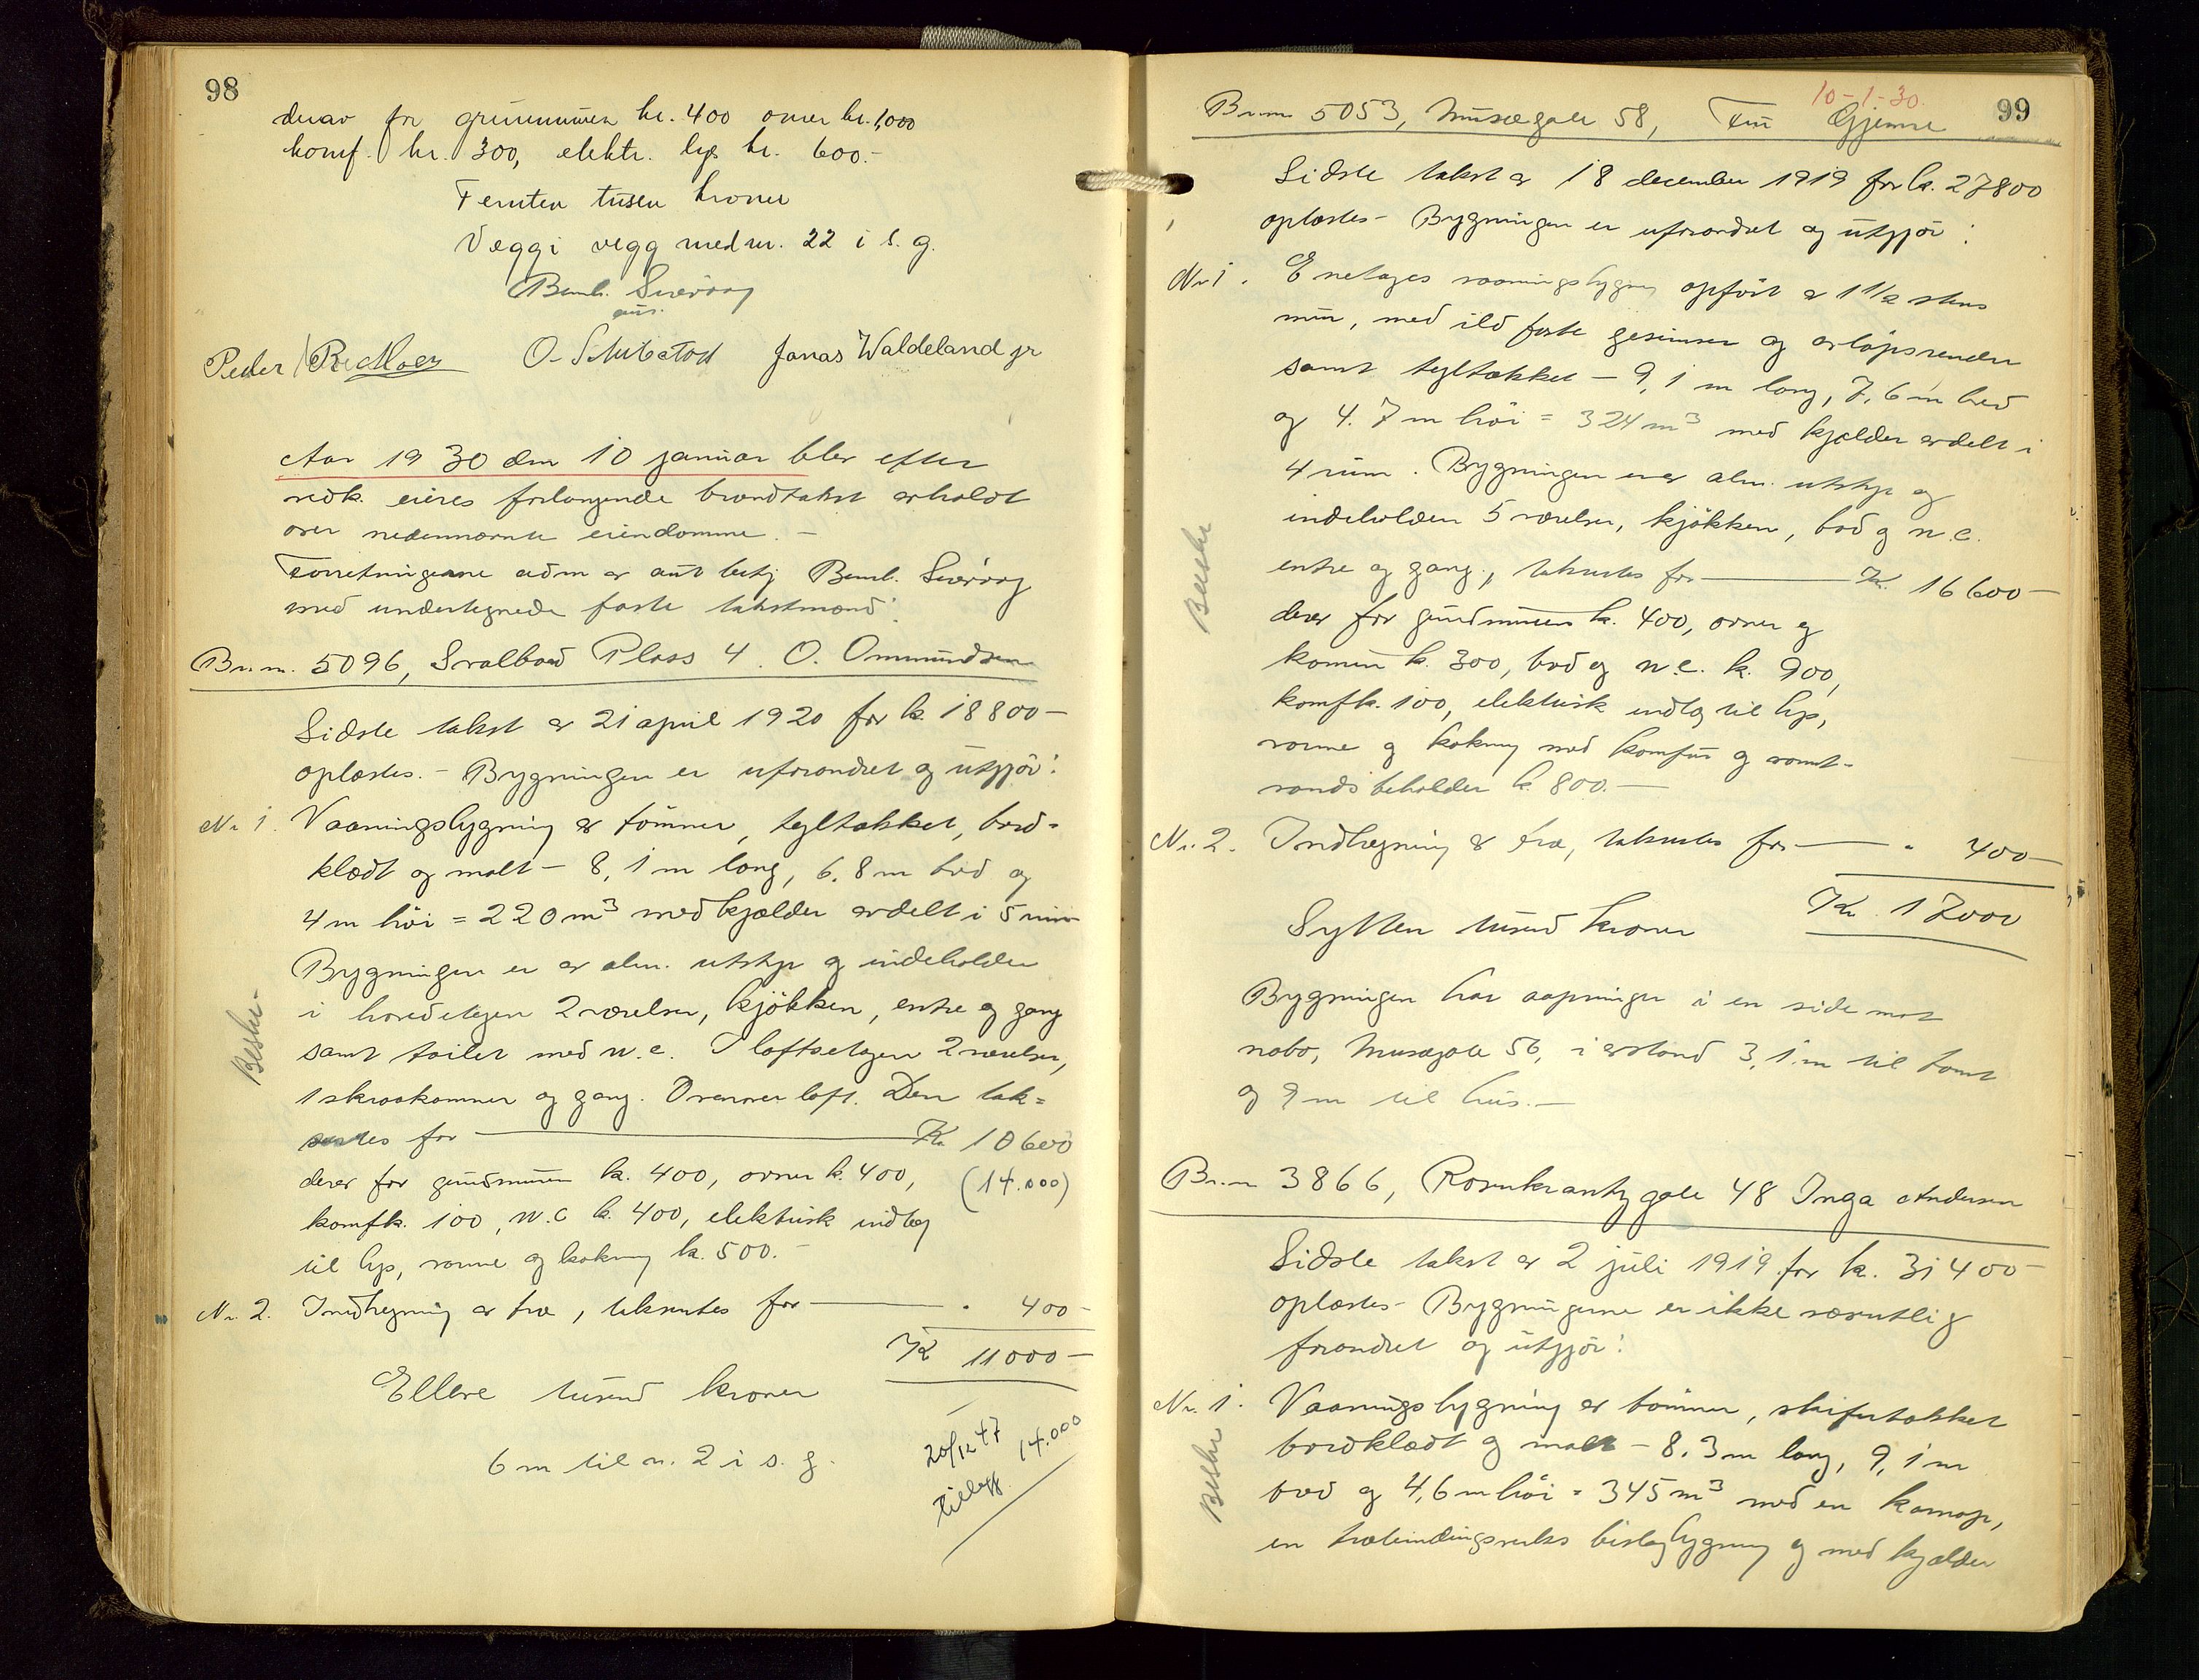 98
derav for grunnmuren kr. 400 ovner kr. 1,000
komf. kr. 300, elektr. lys kr. 600.-
Femten tusen kroner
Vegg i vegg med nr. 22 i s. g.
Bernh.
Peder O. Jonas Waldeland jr
Aar 1930 den 10 januar blev efter
vedk. eieres forlangende brandtakst avholdt
over nedennævnte eiendomme. -
Forretningerne adm. av aut. betj. Bernh.
med undertegnede faste takstmænd:
Br.nr. 5096, Svalbard Plass 4. O. Ommundsen
Sidste takst av 21 april 1920 for kr. 18800-
oplæstes. - Bygningen er uforandret og utgjør:
Nr. 1. Vaaningsbygning av tømmer, tegltækket, bord-
klædt og malt - 8,1 m lang, 6.8 m bred og
4 m høi = 220 m³ med kjælder avdelt i 5 rum
Bygningen er av alm. utstyr og indeholder
i hovedetagen 2 værelser, kjøkken, entre og gang
samt toilet med w.c. I loftsetagen 2 værelser,
1 skraakammer og gang. Ovenover loft. Den tak-
seres for Kr 10600
derav for grundmuren kr. 400, ovner kr. 400, (14.000)
komf kr. 100, w.c kr. 400, elektrisk indlæg
til lys, varme og kokning kr. 500.-
Nr. 2. Indhegning av træ, takseres for " 400-
Kr 11000-
Elleve tusend kroner
20/12 47
tillegg 14.000
6 m til nr. 2 i s. g.
Beskr.
10-1-30.
99
Br.nr. 5053, Musægate 58, Gjemre
Sidste takst av 18 december 1919 for kr. 27800
oplæstes - Bygningen er uforandret og utgjør:
Nr 1. Enetages vaaningsbygning opført av 1 1/2 stens
mur, med ildfaste gesimser og avløpsrender
samt tegltækket - 9,1 m lang, 7,6 m bred
og 4.7 m høi = 324 m³ med kjælder avdelt i
4 rum. Bygningen er av alm. utstyr og
indeholder 5 værelser, kjøkken, bad og w.c.
entre og gang, takseres for Kr. 16600-
derav for grundmuren kr. 400, ovner og
kamin kr. 300, bad og w.c. kr. 900,
komf kr. 100, elektrisk indlæg til lys,
varme og kokning med komfur og varmt-
vandsbeholder kr. 800.-
Nr. 2. Indhegning av træ, takseres for " 400-
Kr. 17000
Sytten tusend kroner
Bygningen har aapninger i en side mot
nabo, Musægate 56, i avstand 3,1 m til tomt
og 9 m til hus.-
Beskr
Br.nr 3866, Rosenkrantzgate 48 Inga Andersen
Sidste takst av 2 juli 1919 for kr. 31400-
oplæstes - Bygningerne er ikke væsentlig
forandret og utgjør:
Nr. 1. Vaaningsbygning av tømmer, skifertækket
bordklædt og malt - 8.3 m lang, 9,1 m
bred og 4,6 m høi = 345 m³ med en karnap,
en træbindingsverks bislagbygning og med kjælder
Beskr